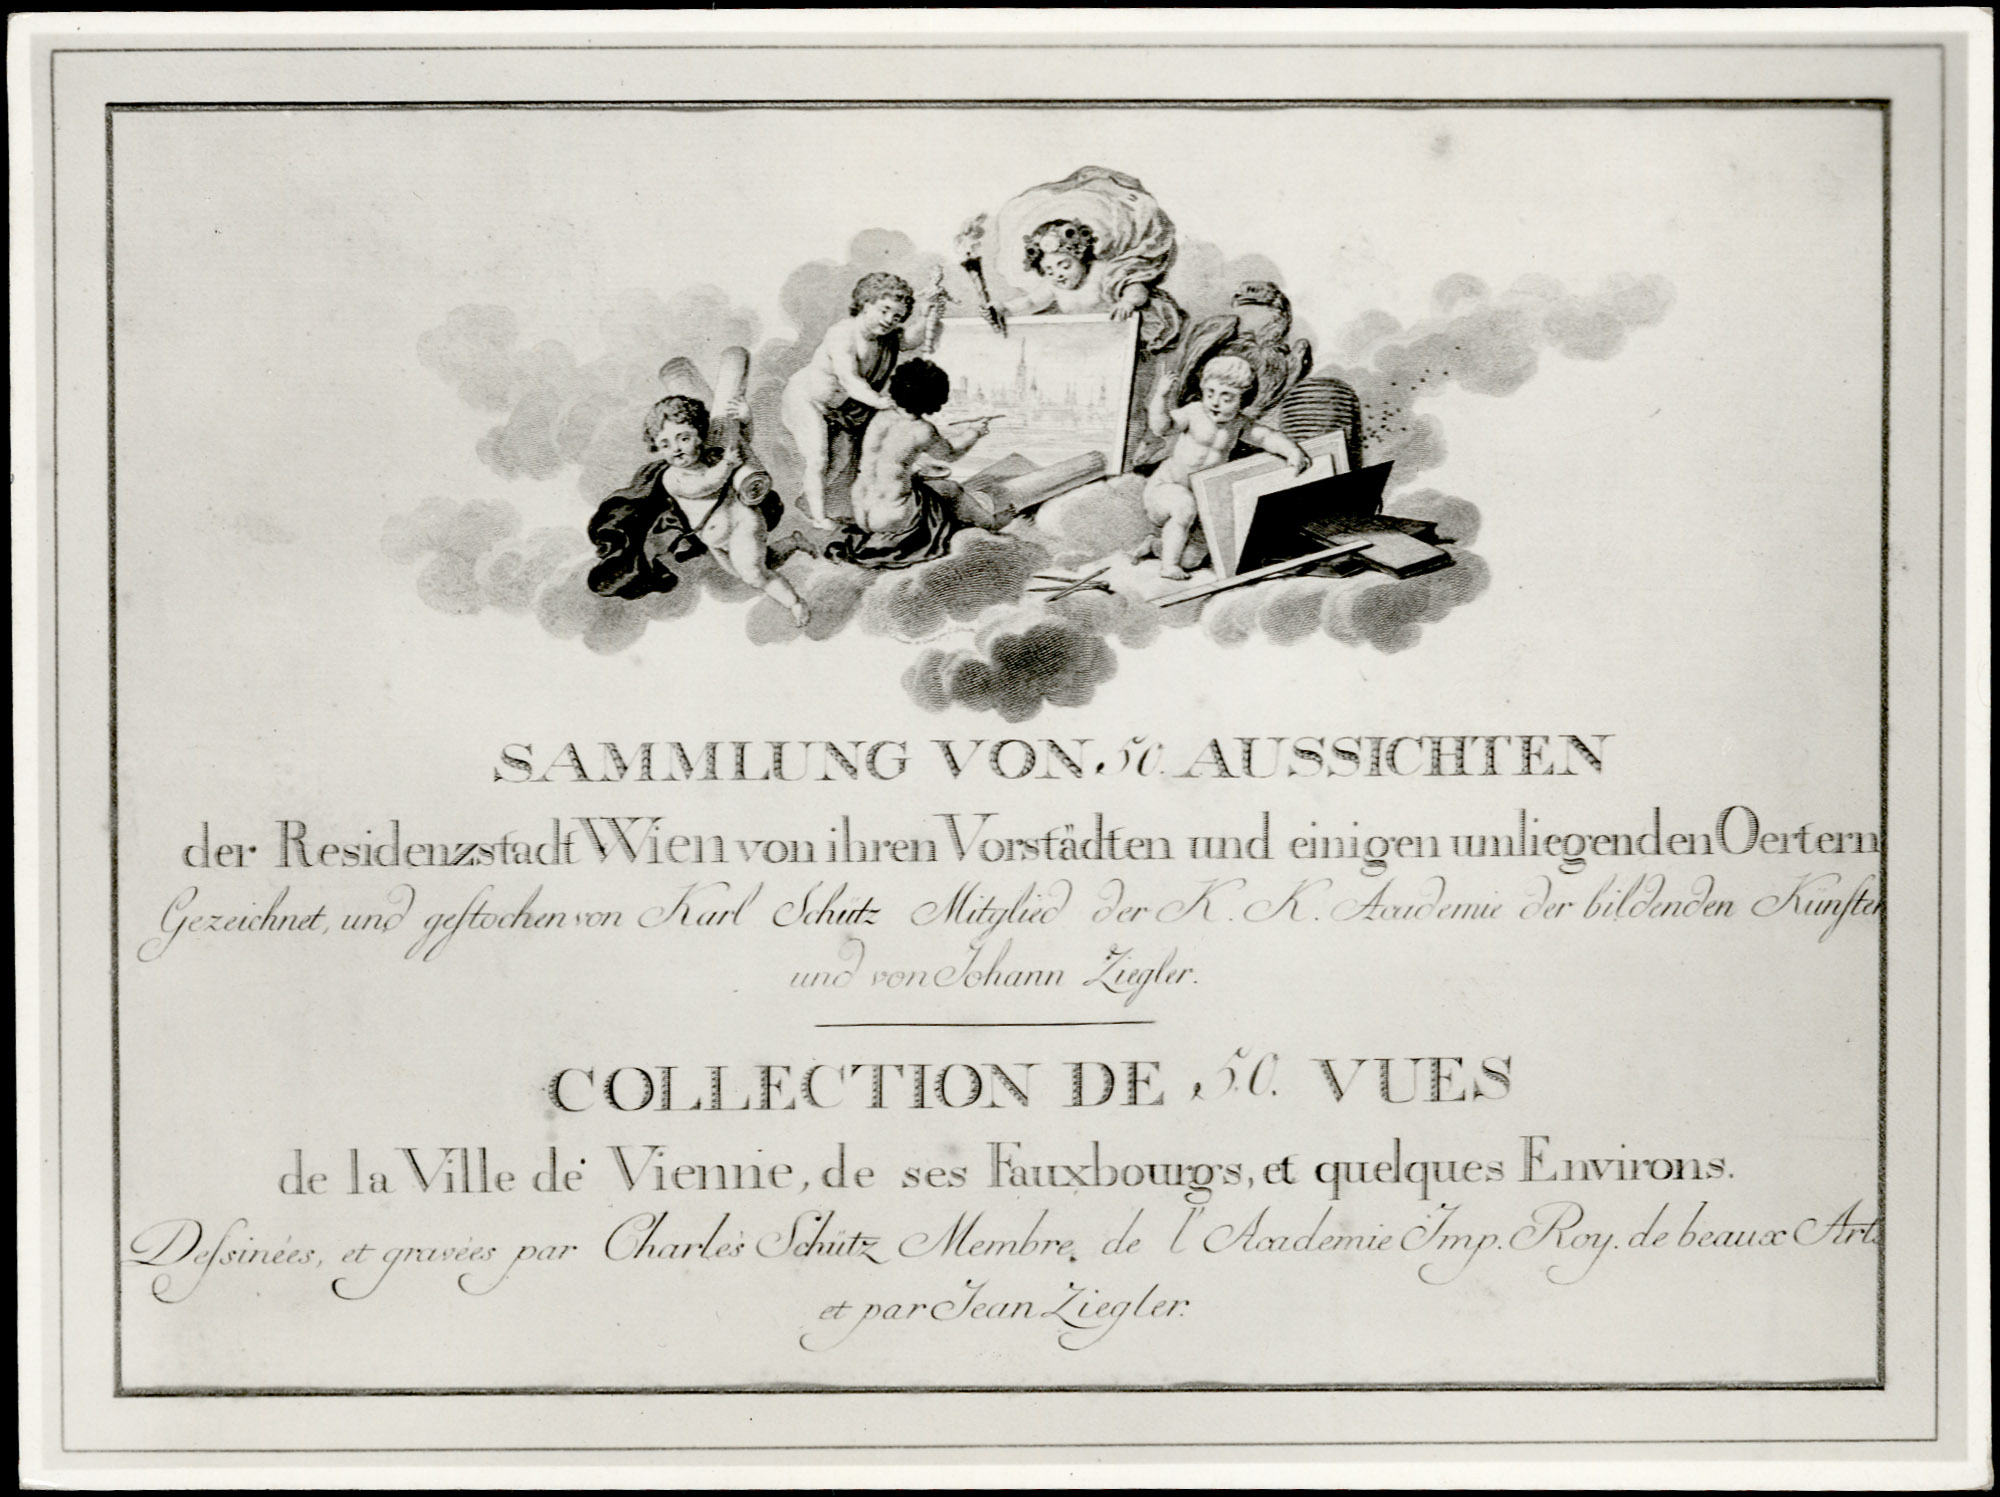 SAMMLUNG VON 50. AUSSICHTEN
der Residenzstadt Wien von ihren Vorstädten und einigen umliegenden Oertern
Gezeichnet, und gestochen von Karl Schütz Mitglied der K. K. Academie der bildenden Künsten
und von Johann Ziegler.
COLLECTION DE 50. VUES
de la Ville de Vienne, de ses Fauxbourgs, et quelques Environs.
Dessinées, et gravées par Charles Schütz Membre de l'Academie Imp. Roy. de beaux Arts
et par Jean Ziegler.